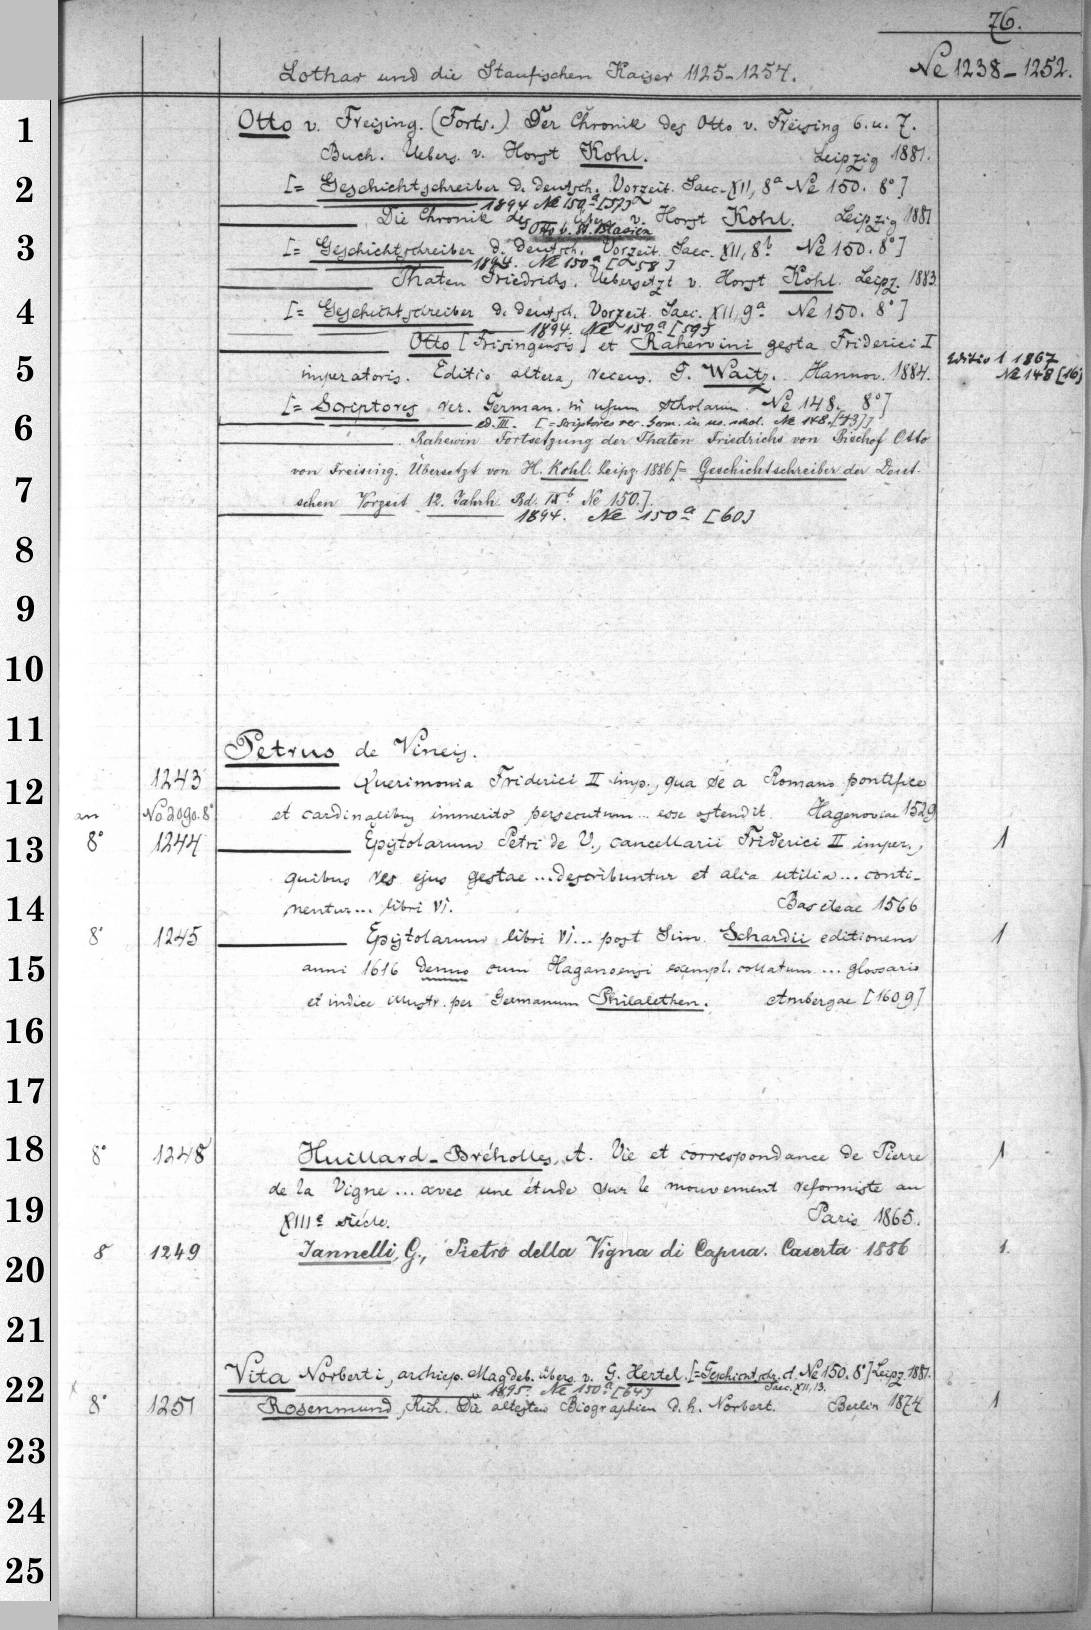 76.
Lothar und die Staufischen Kaiser 1125-1254.
Ne 1238-1252.
1
Otto v. Freising. (Forts.) Der Chronik des Otto v. Freising 6. u. 7.
Buch. Uebers. v. Horst Kohl. Leipzig 1881.
2
[= Geschichtschreiber d. deutsch. Vorzeit. Saec. XII, 8a Ne 150. 8°]
1894 Ne 150a [57]
Die Chronik des Otto v. St. Blasien übers. v. Horst Kohl. Leipzig 1881
3
[= Geschichtschreiber d. deutsch. Vorzeit. Saec. XII, 8b Ne 150. 8°]
1894. Ne 150a [58]
Thaten Friedrichs. Uebersetzt v. Horst Kohl. Leipz. 1883.
4
[= Geschichtschreiber d. deutsch. Vorzeit. Saec. XII, 9a Ne 150. 8°]
1894. Ne 150a [59]
Otto [Frisingensis] et Rahewini gesta Friderici I
Editio 1 1867
5
imperatoris. Editio altera, recens. G. Waitz. Hannov. 1884.
Ne 148 [16]
[= Scriptores rer. German. in usum scholarum. Ne 148. 8°]
6
ed. III. [= Scriptores rer. Germ. in us. schol. Ne 148. [43]]
Rahewin Fortsetzung der Thaten Friedrichs von Bischof Otto
von Freising. Übersetzt von H. Kohl. Leipz. 1886 [= Geschichtschreiber der Deut-
7
schen Vorzeit 12. Jahrh. Bd. IXb Ne 150.]
1894. Ne 150a [60]
8
9
10
11
Petrus de Vineis.
12
1243 Querimonia Friderici II imp., qua se a Romano pontifice
an No 2090. 8° et cardinalibus immerito persecutum ... esse ostendit. Hagenoviae 1529
13
8° 1244 Epistolarum Petri de V., cancellarii Friderici II imper., 1
quibus res ejus gestae ... describuntur et alia utilia ... conti-
14
nentur ... libri VI. Basileae 1566
8° 1245 Epistolarum libri VI ... post Sim. Schardii editionem 1
15
anni 1616 denuo cum Haganoensi exempl. collatum ... glossario
et indice illustr. per Germanum Philalethen. Ambergae [1609]
16
17
18
8° 1248 Huillard-Bréholles, A. Vie et correspondance de Pierre 1
de la Vigne ... avec une étude sur le mouvement reformiste au
19
XIIIe siécle. Paris 1865.
20
8 1249 Iannelli, G., Pietro della Vigna di Capua. Caserta 1886 1.
21
22
Vita Norberti, archiep. Magdeb. übers. v. G. Hertel. [= Geschichtschr. d. Ne 150. 8°] Leipz. 1881.
1895. Ne 150a [64] Saec. XII, 13.
8° 1251 Rosenmund, Rich. Die ältesten Biographien d. h. Norbert. Berlin 1874 1
23
24
25